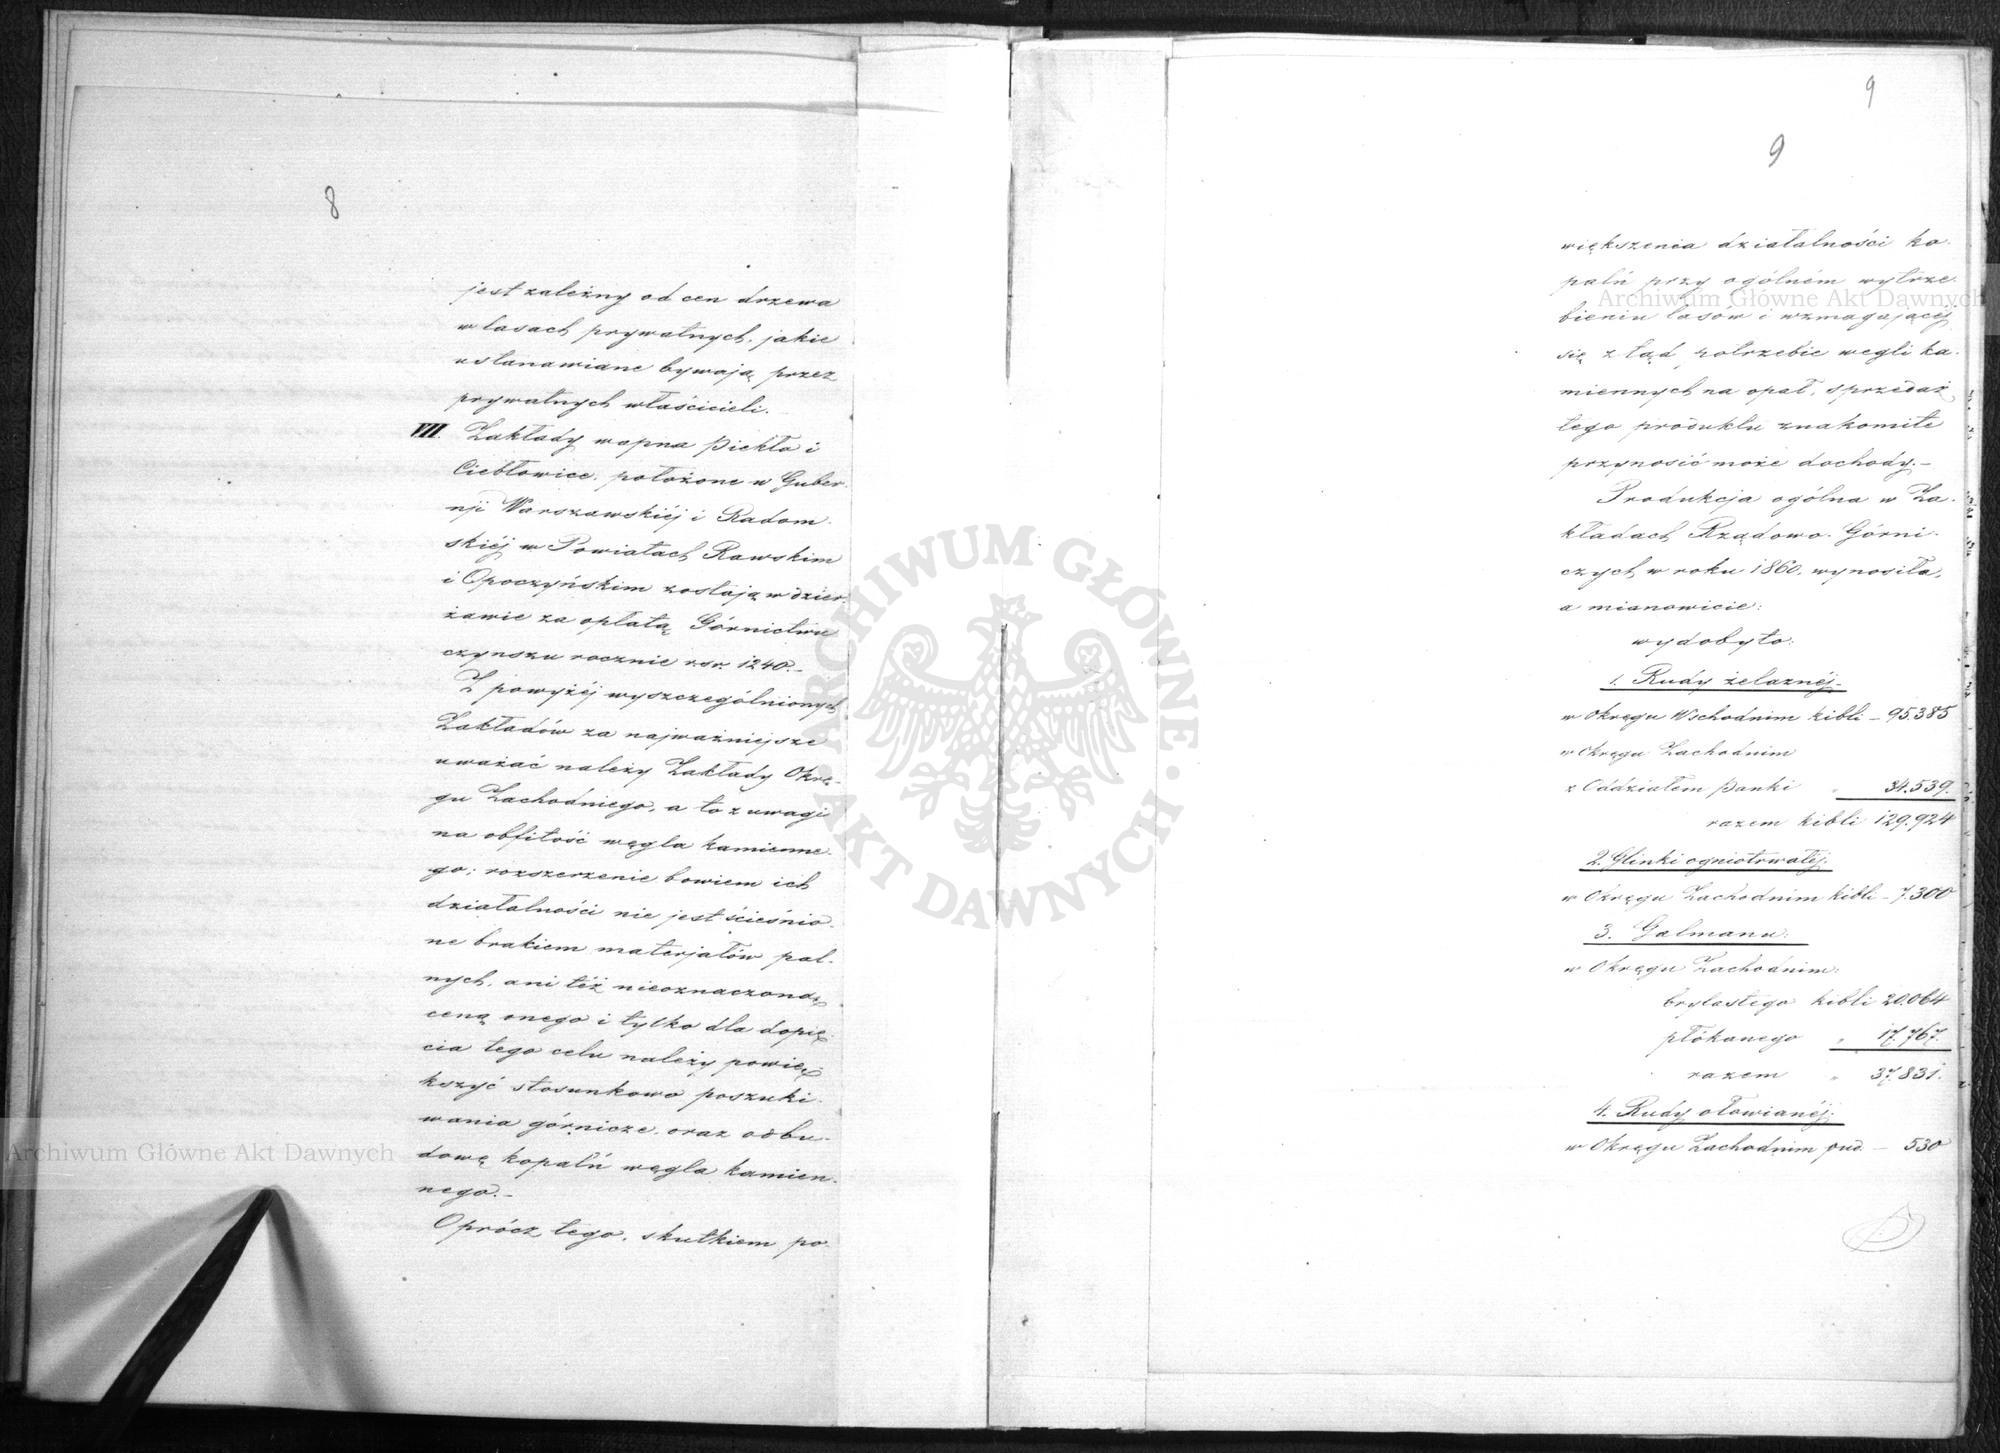 8
jest zależny od cen drzewa
w lasach prywatnych, jakie
ustanawiane bywają przez
prywatnych właścicieli.
VII. Zakłady wapna Piekło i
Ciebłowice, położone w Guber-
nji Warszawskiéj i Radom-
skiéj w Powiatach Rawskim
i Opoczyńskim zostają w dzier-
żawie za opłatą Górnictwu
czynszu rocznie rsr. 1240.-
Z powyżéj wyszczególnionych
Zakładów za najważniejsze
uważać należy Zakłady Okrę-
gu Zachodniego, a to z uwagi
na obfitość węgla kamienne-
go; rozszerzenie bowiem ich
działalności nie jest ścieśnio-
ne brakiem materjałów pal-
nych, ani téż nieoznaczoną
ceną onego i tylko dla dopię-
cia tego celu należy powię-
kszyć stosunkowo poszuki-
wania górnicze, oraz odbu-
dowę kopalń węgla kamien-
nego.-
Oprócz tego, skutkiem po-
9
9
większenia działalności ko-
palń przy ogólném wytrze-
bieniu lasów i wzmagającéj
się z tąd potrzebie węgli ka-
miennych na opał, sprzedaż
tego produktu znakomite
przynosić może dochody.-
Produkcja ogólna w Za-
kładach Rządowo-Górni-
czych w roku 1860. wynosiła,
a mianowicie:
wydobyto:
1. Rudy żelaznéj-
w Okręgu Wschodnim kibli - 95.385
w Okręgu Zachodnim
z Oddziałem Panki " 34.539.
razem kibli 129.924
2. Glinki ogniotrwałéj.
w Okręgu Zachodnim kibli - 7.300
3. Galmanu:
w Okręgu Zachodnim:
bryłastego kibli 20.064
płókanego " 17.767.
razem " 37.831.
4. Rudy ołowianéj:
w Okręgu Zachodnim pud. - 530
Archiwum Główne Akt Dawnych
Archiwum Główne Akt Dawnych
ARCHIWUM GŁÓWNE · AKT DAWNYCH ·